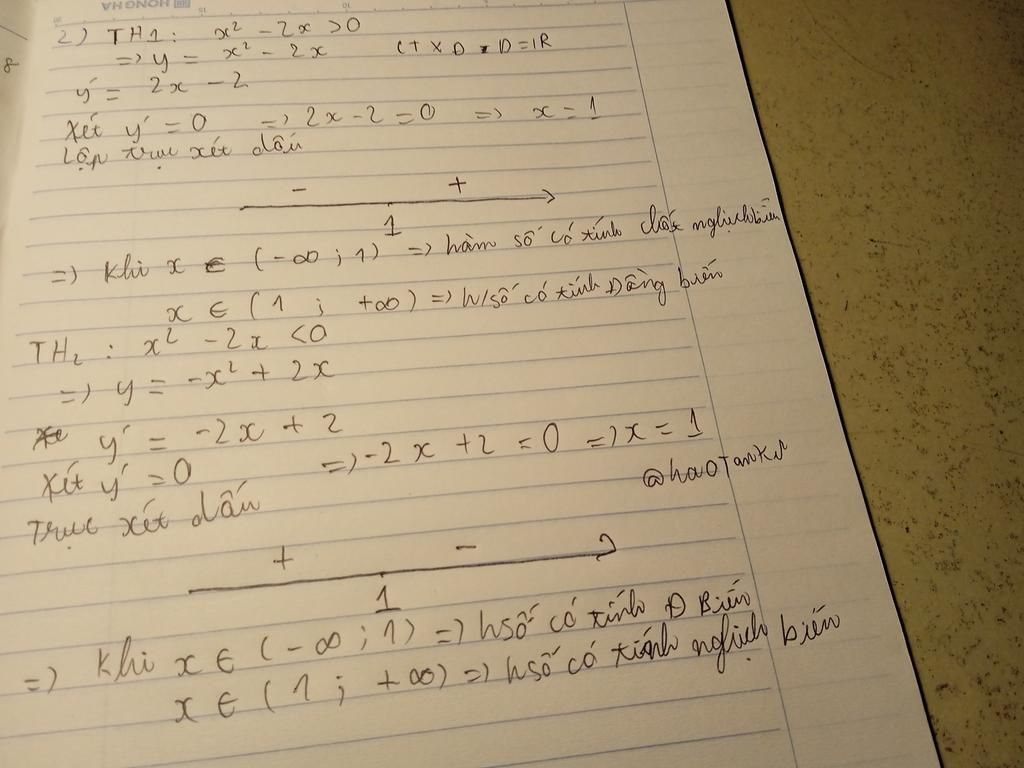 HONGHA
2) TH1: x² - 2x > 0
=> y = x² - 2x (TXD: D = IR
y' = 2x - 2
Xét y' = 0 => 2x - 2 = 0 => x = 1
Lập trục xét dấu
- +
1
=> Khi x ∈ (-∞; 1) => hàm số có tính chất nghịch biến
x ∈ (1; +∞) => h/số có tính Đồng biến
TH2: x² - 2x < 0
=> y = -x² + 2x
y' = -2x + 2
Xét y' = 0 => -2x + 2 = 0 => x = 1
@haoTanKu
Trục xét dấu
+ -
1
=> Khi x ∈ (-∞; 1) => hsố có tính Đ Biến
x ∈ (1; +∞) => hsố có tính nghịch biến